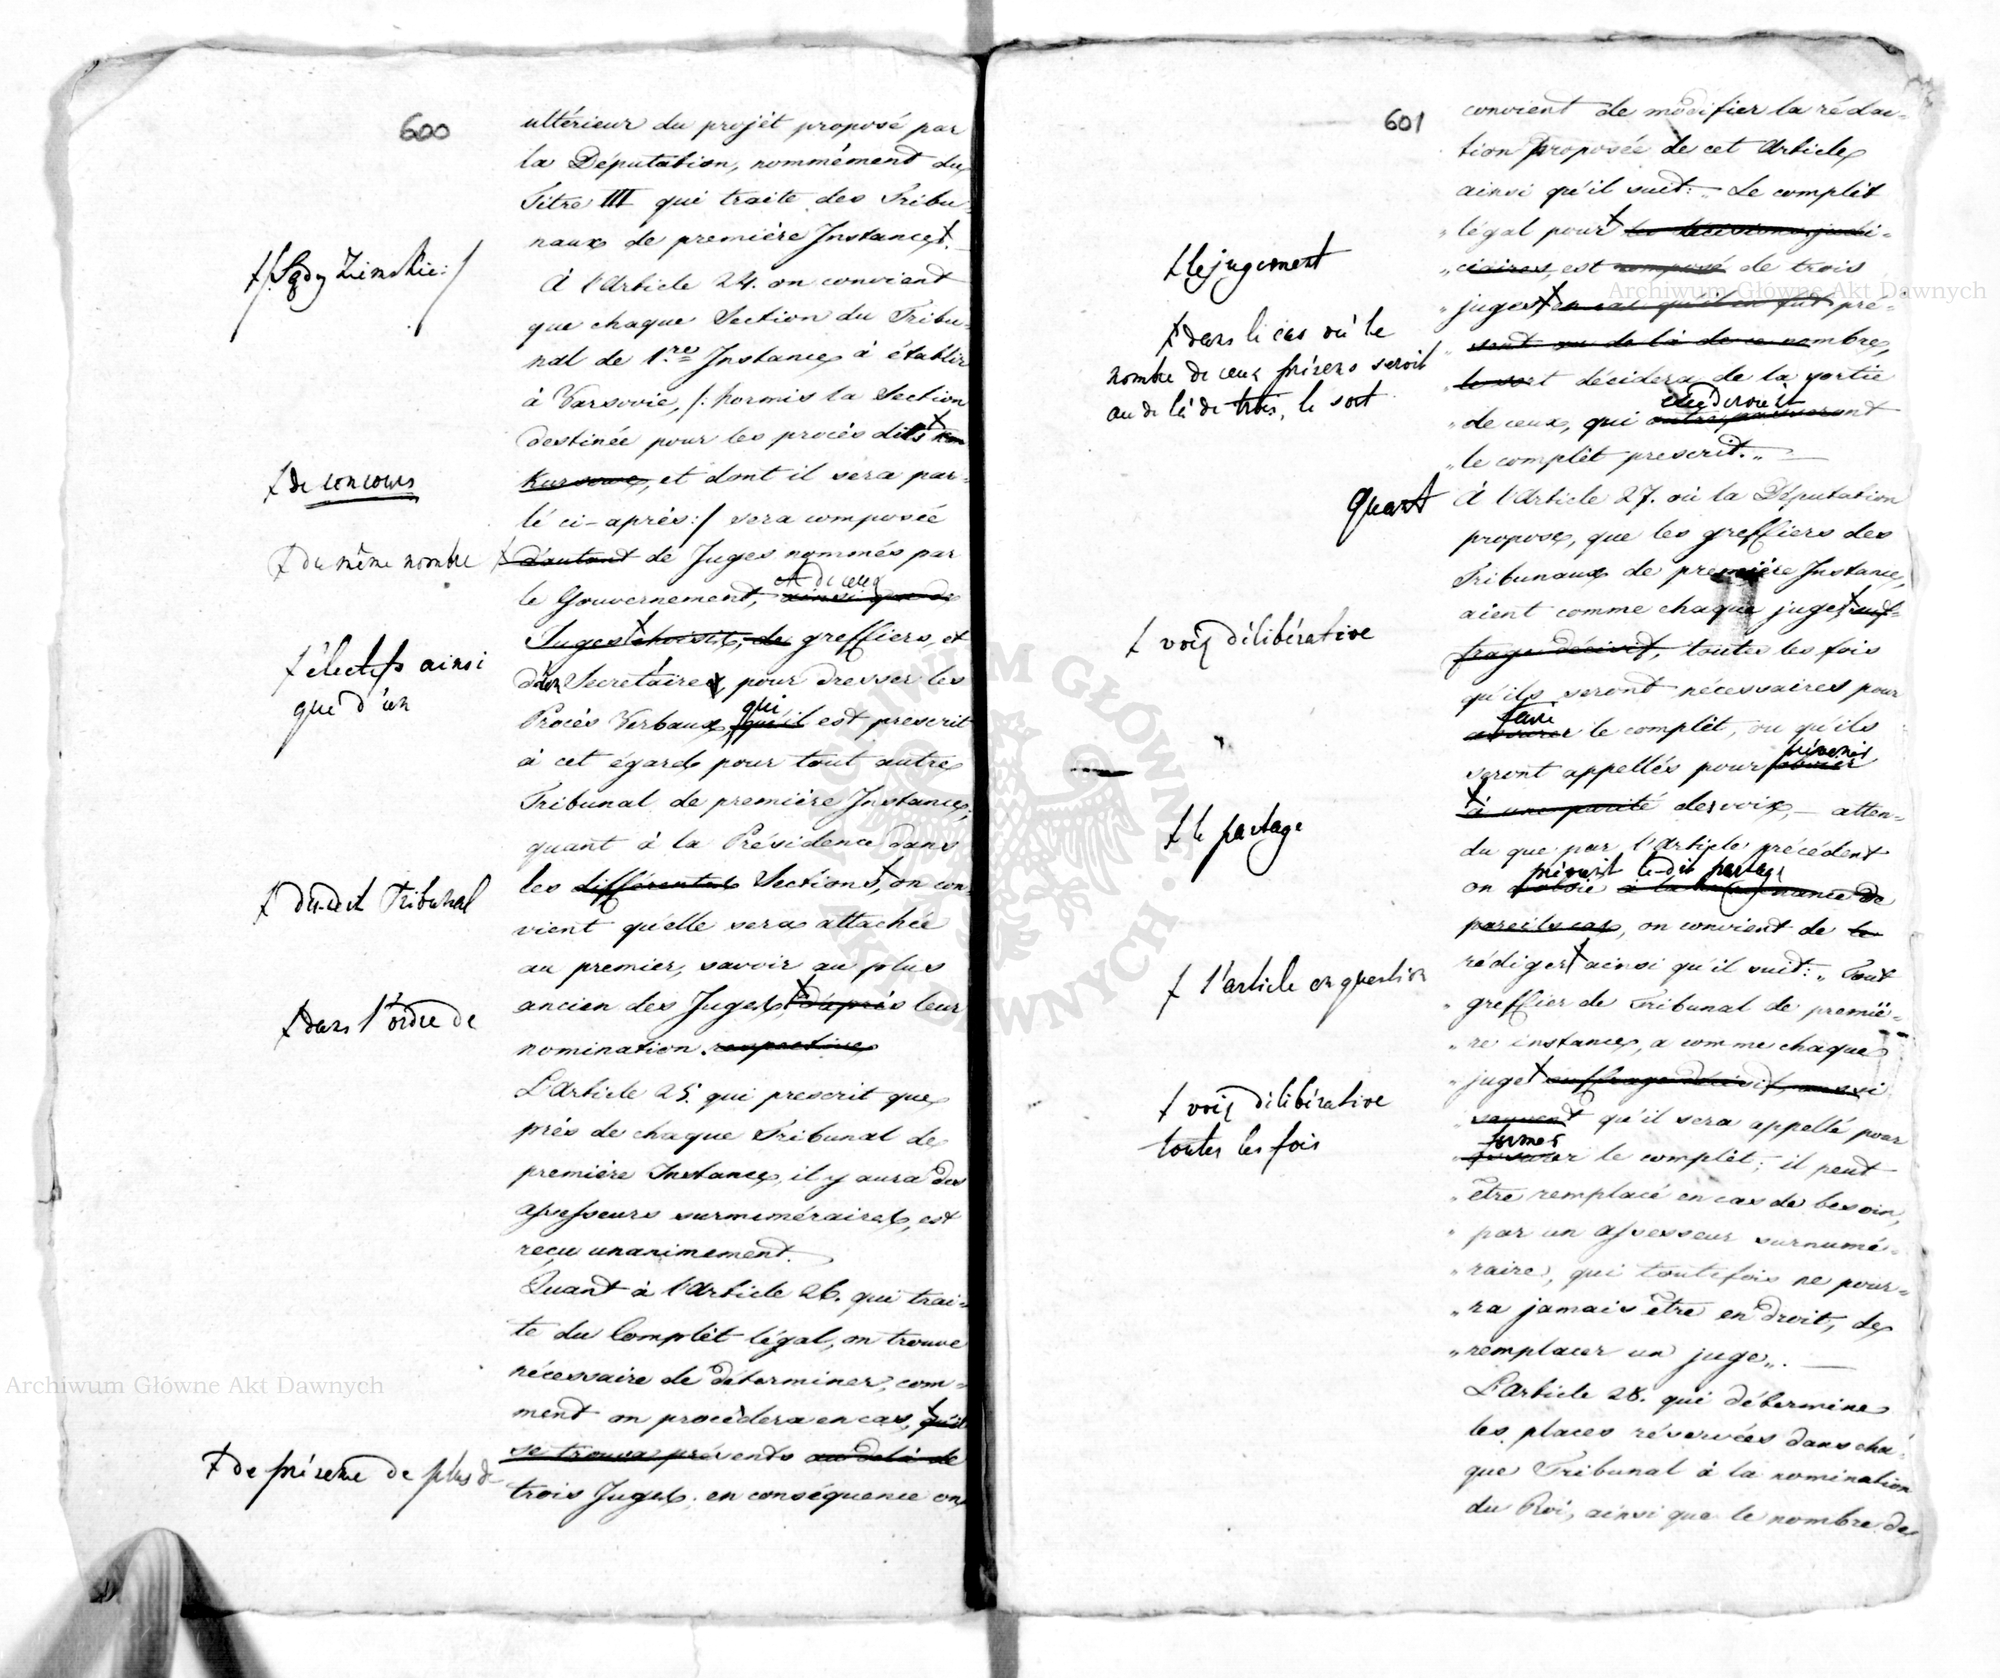 600
ultérieur du projet proposé par
la Députation, nommément du
Titre III qui traite des Tribu-
naux de première Instance.
À l'Article 24. on convient
que chaque Section du Tribu-
nal de 1.re Instance à établir
à Varsovie, /: hormis la Section
destinée pour les procès dits kon
kursowe, et dont il sera par-
lé ci-après :/ sera composée
d'autant de Juges nommés par
et de ceux
le Gouvernement, ainsi que de
Juges choisis, de greffiers, et
d'un Secrétaire, pour dresser les
qui
Procès Verbaux, qu'il est prescrit
à cet égard pour tout autre
Tribunal de première Instance;
quant à la Présidence dans
les différentes Sections, on con-
vient qu'elle sera attachée
au premier, savoir au plus
ancien des Juges d'après leur
nomination respective
L'Article 25. qui prescrit que
près de chaque Tribunal de
première Instance, il y aura des
assesseurs surnuméraires, est
reçu unanimement.
Quant à l'Article 26. qui trai-
te du Complèt légal, on trouve
nécessaire de déterminer, com-
ment on procèdera en cas, qu'il
se trouva présents au delà de
trois Juges. en conséquence on
/: Sądy Ziemskie :/
de concours
du même nombre
électifs ainsi
que d'un
du-dit Tribunal
dans l'ordre de
de présence de plus de
601
convient de modifier la rédac-
tion proposée de cet Article
ainsi qu'il suit: „ Le complèt
„ légal pour les décisions judi-
„ ciaires, est composé de trois
„ juges en cas qu'il en fut pré-
„ sent au de là de ce nombre,
„ le sort décidera de la sortie
excéderont
„ de ceux, qui outrepasseront
„ le complèt prescrit. „
Quant À l'Article 27. où la Députation
propose, que les greffiers des
Tribunaux de première Instance,
aient comme chaque juge, suf-
frage décisif, toutes les fois
qu'ils seront nécessaires pour
faire
assurer le complèt, ou qu'ils
prévenir
seront appellés pour obvier
à une parité des voix, — atten-
du que par l'Article précédent
prévient le-dit partage
on obvie à la de
pareils cas, on convient de le
rédiger ainsi qu'il suit: „ Tout
„ greffier de Tribunal de premiè-
„ re instance, a comme chaque
„ juge suffrage décisif, aussi
„ souvent qu'il sera appellé pour
former
„ assurer le complèt; il peut
„ être remplacé en cas de besoin,
„ par un assesseur surnumé-
„ raire, qui toutefois ne pour-
„ ra jamais être en droit, de
„ remplacer un juge „.
L'Article 28. qui détermine
les places réservées dans cha-
que Tribunal à la nomination
du Roi, ainsi que le nombre de
le jugement
dans le cas où le
nombre de ceux présens seroit
au de là de trois, le sort
voix délibérative
le partage
l'article en question
voix délibérative
toutes les fois
Archiwum Główne Akt Dawnych
Archiwum Główne Akt Dawnych
ARCHIWUM GŁÓWNE AKT DAWNYCH